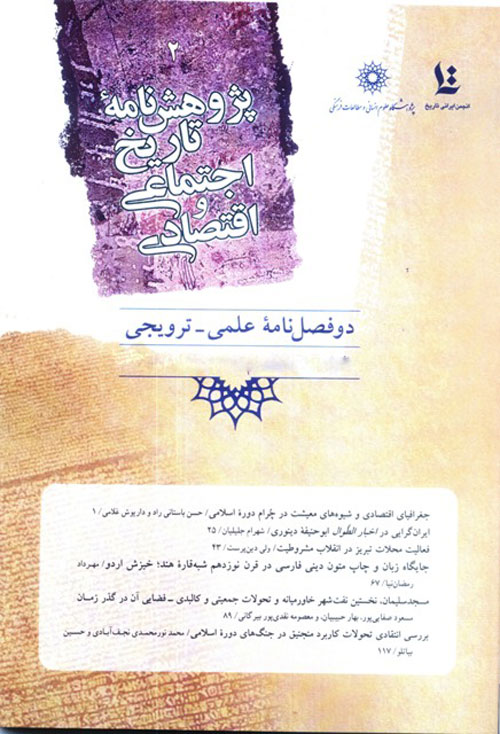 انجمن ایرانی تاریخ
پژوهشگاه علوم انسانی و مطالعات فرهنگی
۲
پژوهش‌نامهٔ
تاریخ
اجتماعی
و
اقتصادی
دو فصل‌نامهٔ علمی - ترویجی
جغرافیای اقتصادی و شیوه‌های معیشت در چُرام دورهٔ اسلامی/ حسن باستانی راد و داریوش غلامی/ ۱
ایران‌گرایی در اخبار الطِّوال ابوحنیفهٔ دینوری/ شهرام جلیلیان/ ۲۵
فعالیت محلات تبریز در انقلاب مشروطیت/ ولی دین‌پرست/ ۴۳
جایگاه زبان و چاپ متون دینی فارسی در قرن نوزدهم شبه‌قارهٔ هند؛ خیزش اردو/ مهرداد
رمضان‌نیا/ ۶۷
مسجدسلیمان، نخستین نفت‌شهر خاورمیانه و تحولات جمعیتی و کالبدی - فضایی آن در گذر زمان
مسعود صفایی‌پور، بهار حبیبیان، و معصومه نقدی‌پور بیرگانی/ ۸۹
بررسی انتقادی تحولات کاربرد منجنیق در جنگ‌های دورهٔ اسلامی/ محمد نورمحمدی نجف‌آبادی و حسین
بیاتلو/ ۱۱۷